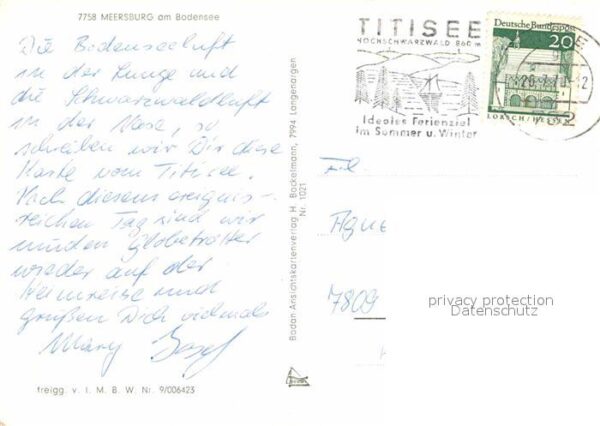 7758 MEERSBURG am Bodensee
Die Bodenseeluft
in der Lunge und
die Schwarzwaldluft
in der Nase, so
schreiben wir Dir diese
Karte vom Titisee.
Nach diesem ereignis-
reichen Tag sind wir
müden Globetrotter
wieder auf der
Heimreise und
grüßen Dich vielmals
Mary Josef
freigg. v. I. M. B. W. Nr. 9/006423
Badan Ansichtskartenverlag H. Bockelmann, 7994 Langenargen
Nr. 1021
TITISEE
HOCHSCHWARZWALD 860 m
Ideales Ferienziel
im Sommer u. Winter
Deutsche Bundespost
20
LORSCH/HESSEN
Frl.
Agne
7809
privacy protection
Datenschutz